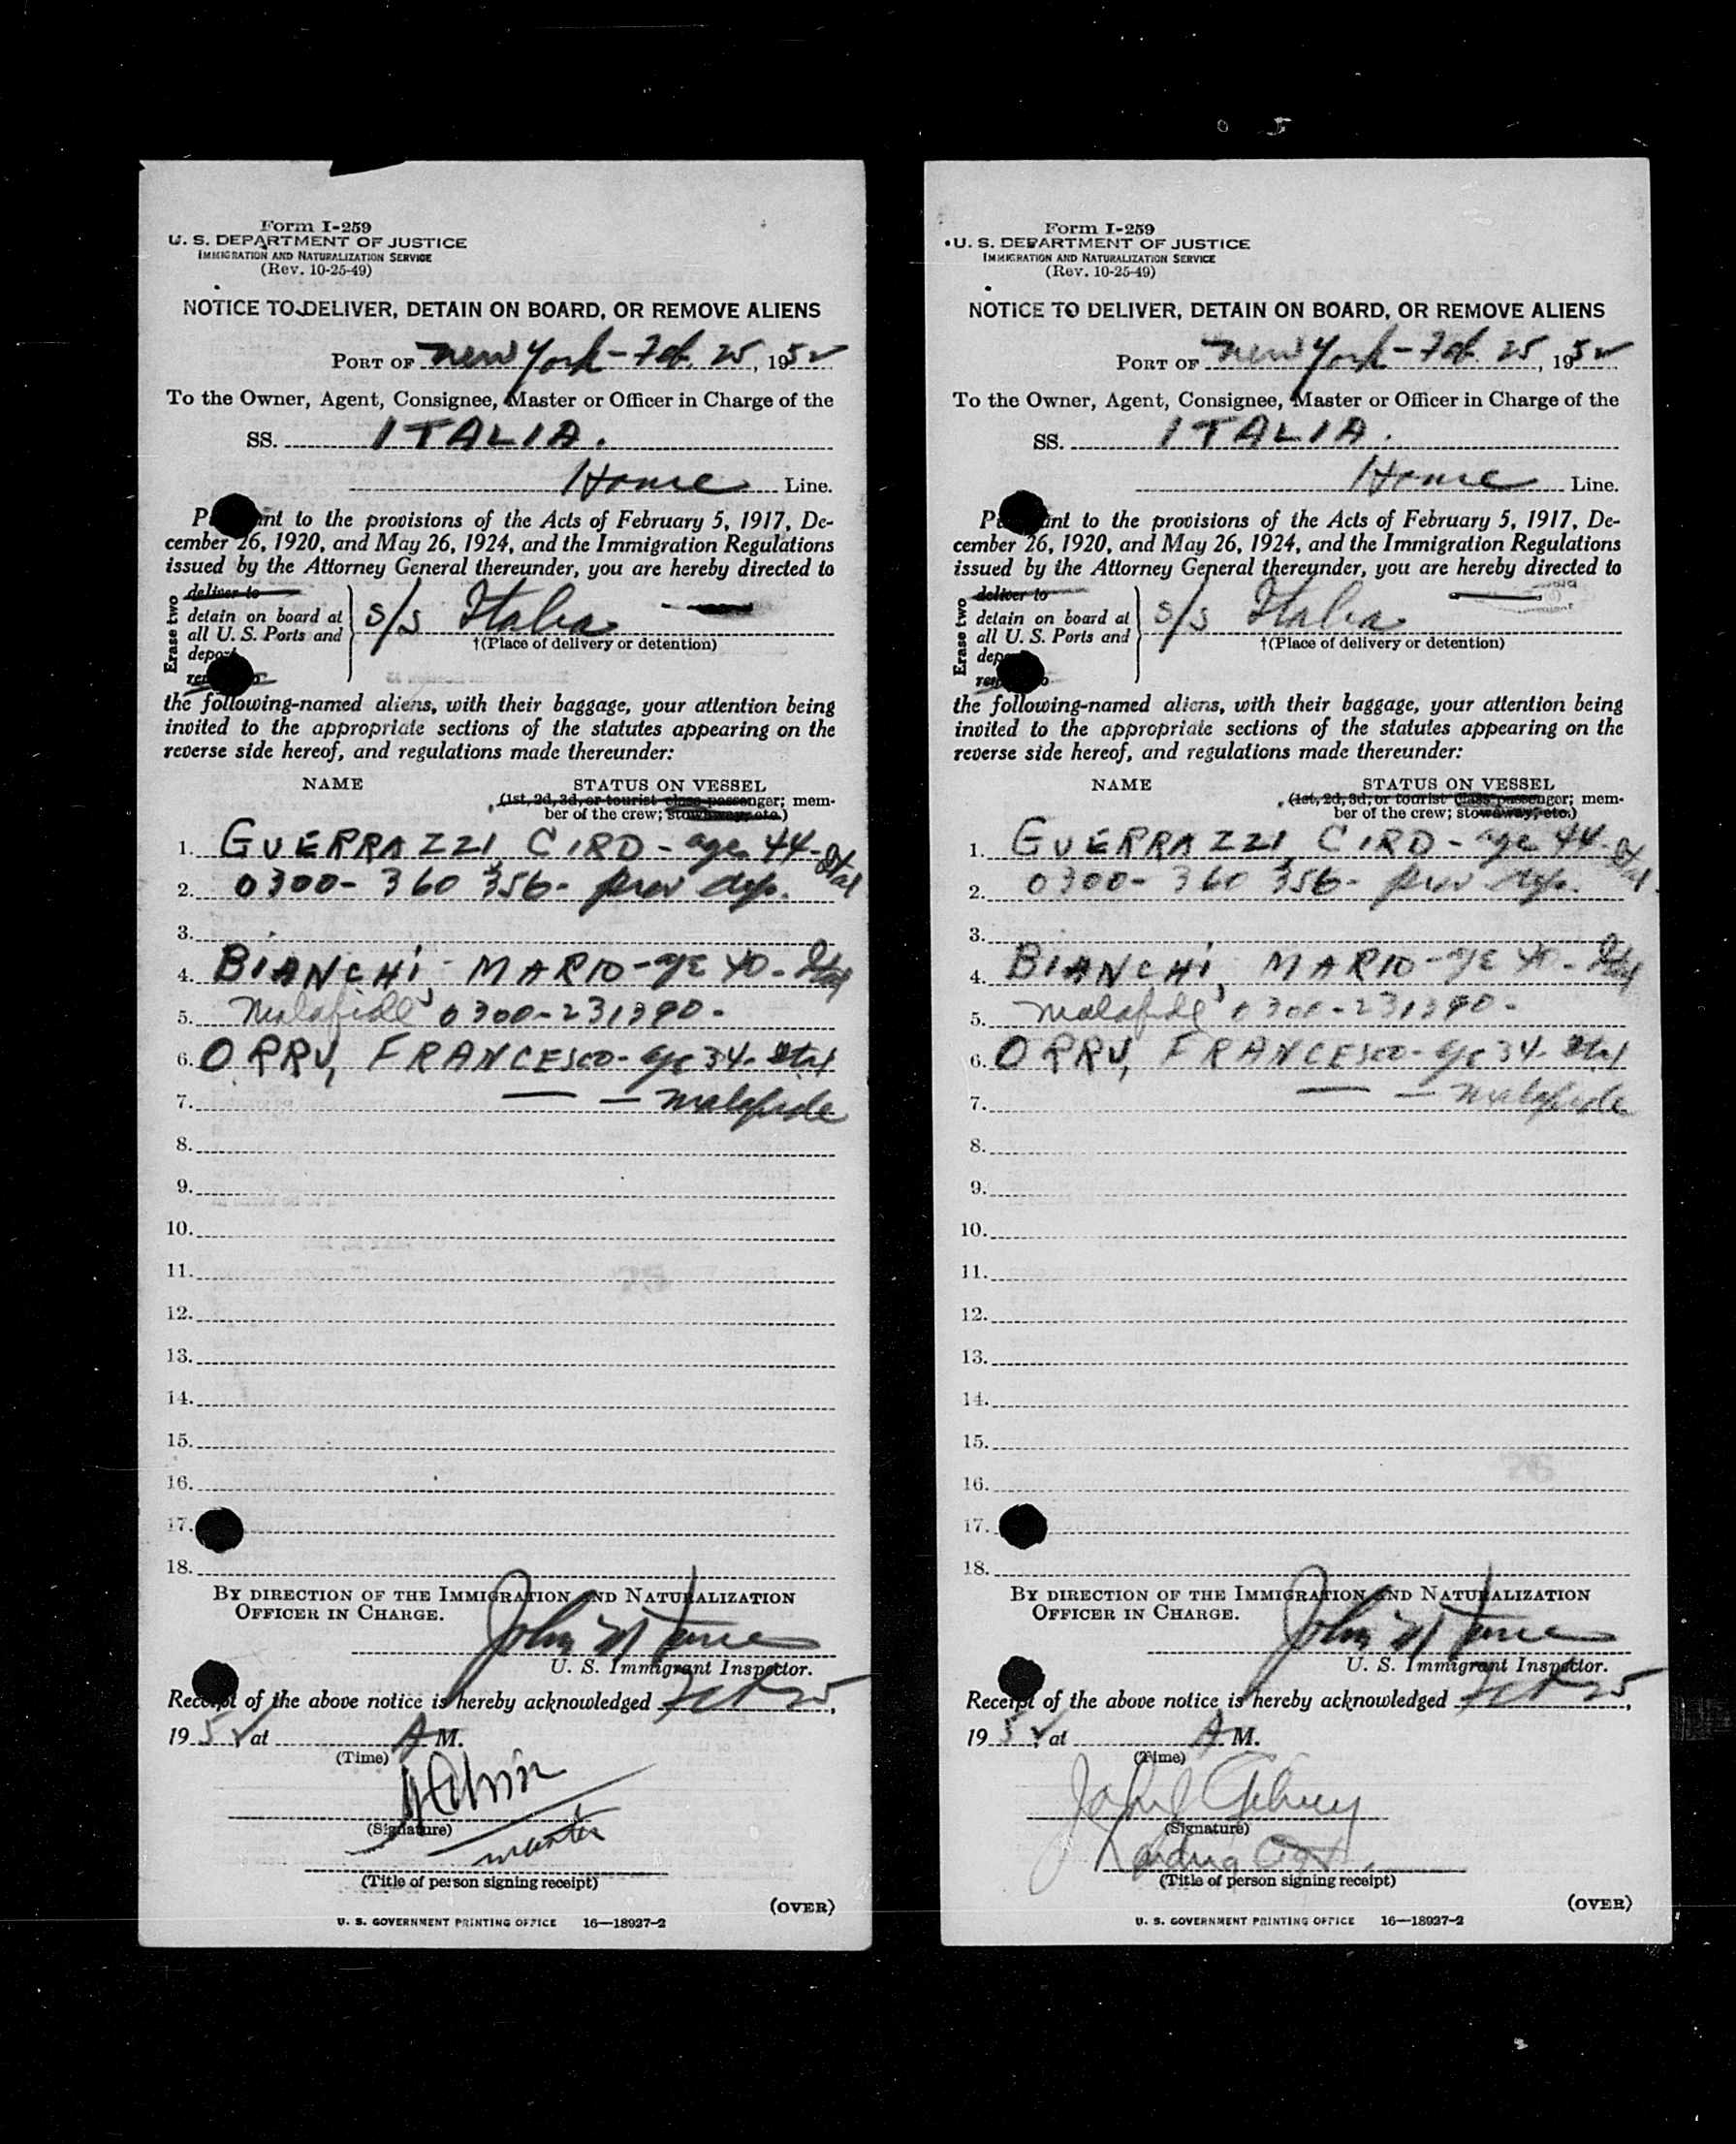 Form I-259
U. S. DEPARTMENT OF JUSTICE
IMMIGRATION AND NATURALIZATION SERVICE
(Rev. 10-25-49)
NOTICE TO DELIVER, DETAIN ON BOARD, OR REMOVE ALIENS
PORT OF New York - Feb. 25, 1952
To the Owner, Agent, Consignee, Master or Officer in Charge of the
SS. ITALIA.
Home Line.
P nt to the provisions of the Acts of February 5, 1917, De-
cember 26, 1920, and May 26, 1924, and the Immigration Regulations
issued by the Attorney General thereunder, you are hereby directed to
Erase two
deliver to
detain on board at
all U. S. Ports and
deport
s/s Italia
†(Place of delivery or detention)
the following-named aliens, with their baggage, your attention being
invited to the appropriate sections of the statutes appearing on the
reverse side hereof, and regulations made thereunder:
NAME STATUS ON VESSEL
(1st, 2d, 3d, or tourist class passenger; mem-
ber of the crew; stowaway, etc.)
1. GUERRAZZI, CIRO - age 44 - Ital
2. 0300- 360 356- prev dep.
3.
4. BIANCHI, MARIO - age 40 - Ital
5. Malafide 0300-231390 -
6. ORRU, FRANCESCO - age 34 - Ital
7. — — malafide
8.
9.
10.
11.
12.
13.
14.
15.
16.
17.
18.
BY DIRECTION OF THE IMMIGRATION AND NATURALIZATION
OFFICER IN CHARGE.
John
U. S. Immigrant Inspector.
Receipt of the above notice is hereby acknowledged Feb 25,
1952 at A M.
(Time)
(Signature)
master
(Title of person signing receipt)
(OVER)
U. S. GOVERNMENT PRINTING OFFICE 16—18927-2
Form I-259
U. S. DEPARTMENT OF JUSTICE
IMMIGRATION AND NATURALIZATION SERVICE
(Rev. 10-25-49)
NOTICE TO DELIVER, DETAIN ON BOARD, OR REMOVE ALIENS
PORT OF New York - Feb. 25, 1952
To the Owner, Agent, Consignee, Master or Officer in Charge of the
SS. ITALIA.
Home Line.
P ant to the provisions of the Acts of February 5, 1917, De-
cember 26, 1920, and May 26, 1924, and the Immigration Regulations
issued by the Attorney General thereunder, you are hereby directed to
Erase two
deliver to
detain on board at
all U. S. Ports and
s/s Italia
†(Place of delivery or detention)
the following-named aliens, with their baggage, your attention being
invited to the appropriate sections of the statutes appearing on the
reverse side hereof, and regulations made thereunder:
NAME STATUS ON VESSEL
(1st, 2d, 3d, or tourist class passenger; mem-
ber of the crew; stowaway, etc.)
1. GUERRAZZI, CIRO - age 44 - Ital
2. 0300- 360 356- prev dep.
3.
4. BIANCHI, MARIO - age 40 - Ital
5. Malafide 0300-231390 -
6. ORRU, FRANCESCO - age 34 - Ital
7. — — malafide
8.
9.
10.
11.
12.
13.
14.
15.
16.
17.
18.
BY DIRECTION OF THE IMMIGRATION AND NATURALIZATION
OFFICER IN CHARGE.
John
U. S. Immigrant Inspector.
Receipt of the above notice is hereby acknowledged Feb 25,
1952, at A M.
(Time)
(Signature)
(Title of person signing receipt)
(OVER)
U. S. GOVERNMENT PRINTING OFFICE 16—18927-2